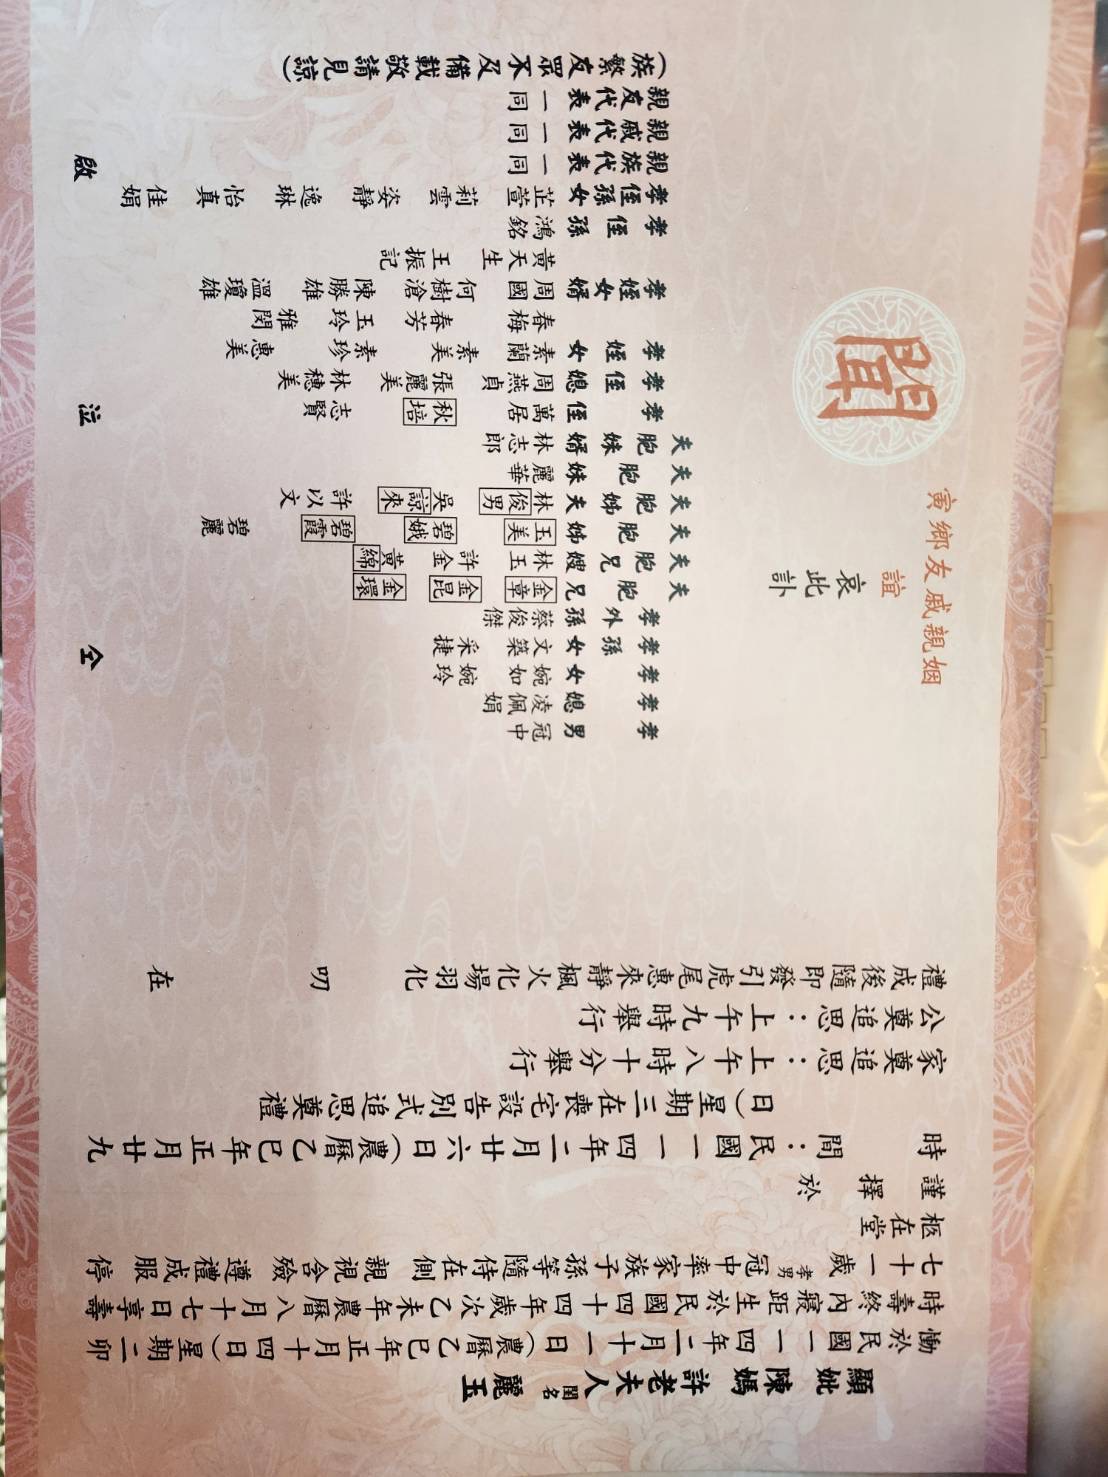 顯妣陳媽許老夫人閨名麗玉
慟於民國一一四年二月十一日(農曆乙巳年正月十四日)星期二卯
時壽終內寢距生於民國四十四年歲次乙未年農曆八月十七日享壽
七十一歲孝男冠中率家族子孫等隨侍在側親視含殮遵禮成服停
柩在堂
謹擇於
時間:民國一一四年二月廿六日(農曆乙巳年正月廿九
日)星期三在喪宅設告別式追思奠禮
家奠追思:上午八時十分舉行
公奠追思:上午九時舉行
禮成後隨即發引虎尾惠來靜楓火化場羽化 叨 在
寅鄉友戚親姻
誼
哀此訃
聞
孝男 冠中
孝媳 凌佩娟
孝女 婉如 婉玲
孝孫女 文築 采捷
孝外孫 蔡俊傑
夫胞兄 金章 金昆 金環
夫胞兄嫂 林玉 許金 黃綿
夫胞姊 玉美 碧娥 碧霞 碧麗
夫胞姊夫 林俊男 吳諒來 許以文
夫胞妹 麗華
夫胞妹婿 林志郎
孝侄 萬居 秋培 志賢
孝侄媳 周燕貞 張麗美 林穗美
孝姪女 素蘭 素美 素珍 惠美
春梅 春芳 玉玲 雅閔
孝姪女婿 周國 何樹滄 陳勝雄 溫瓊雄
黃天生 王振記
孝侄孫 鴻銘
孝侄孫女 芷萱 莉雲 姿靜 逸琳 怡真 佳娟
親族代表一同
親戚代表一同
親友代表一同
(族繁友眾不及備載敬請見諒)
仝 泣 啟